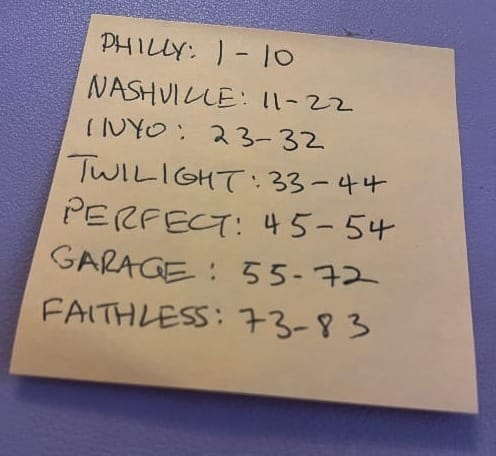 PHILLY: 1-10
NASHVILLE: 11-22
INYO: 23-32
TWILIGHT: 33-44
PERFECT: 45-54
GARAGE: 55-72
FAITHLESS: 73-83